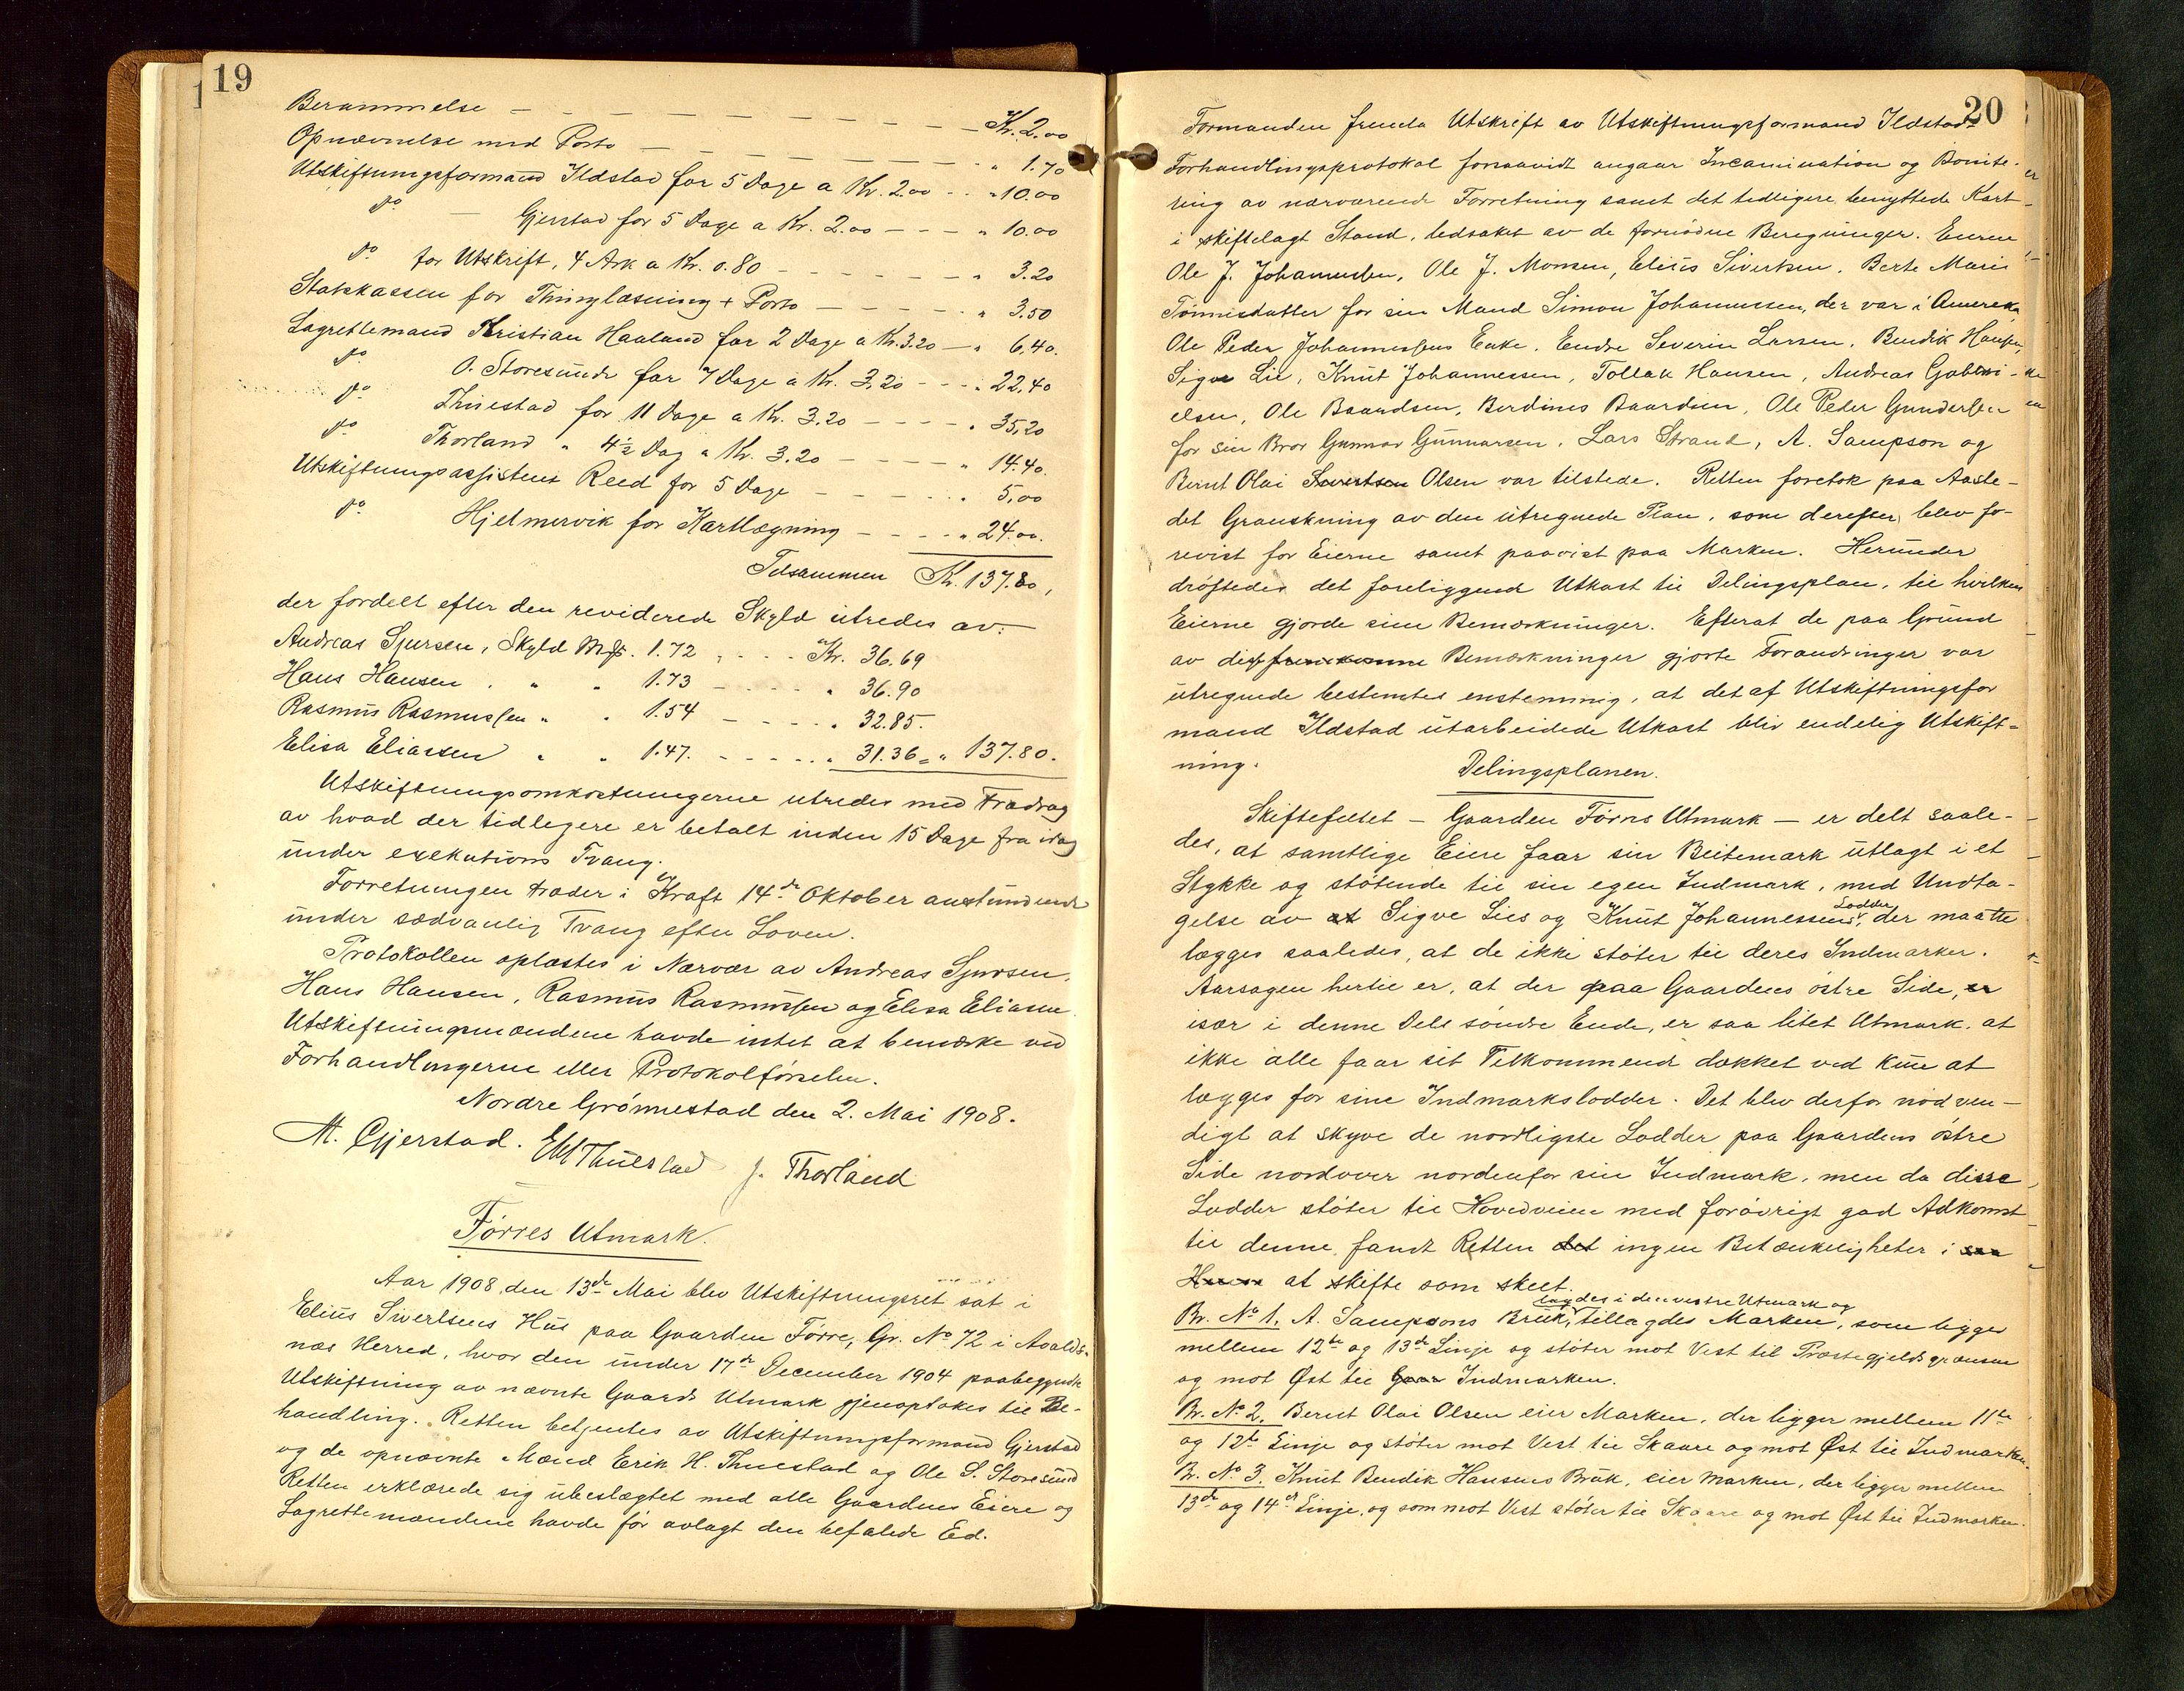 19
Berammelse — — — — — — — — Kr. 2.00
Opnævnelse med Porto — — — — — — — — " 1.70
Utskiftningsformand Ildstad for 5 Dage a Kr. 2.00 - - " 10.00
do — Gjerstad for 5 Dage a Kr. 2.00 - - - " 10.00
do for Utskrift, 4 Ark a Kr. 0.80 - - - - - - " 3.20
Statskassen for Thinglæsning + Porto — - - - - " 3.50
Lagrettemand Kristian Haaland for 2 Dage a Kr. 3.20 — " 6,40.
do O. Storesund for 7 Dage a Kr. 3,20 - - - " 22,40
do Thuestad for 11 Dage a Kr. 3.20 - - - - " 35,20
do Thorland " 4½ Dag a Kr. 3.20 - - - - " 14.40.
Utskiftningsassistent Reed for 5 Dage - - - - - " 5,00
do Hjelmervik for Kartlægning - - - - " 24.00.
Tilsammen Kr. 137.80,
der fordelt efter den reviderede Skyld utredes av:
Andreas Sjursen, Skyld Mrk. 1.72 , - - - Kr. 36.69
Hans Hansen . " " 1.73 - - - - " 36.90
Rasmus Rasmussen " " 1.54 - - - - " 32.85.
Elisa Eliassen " " 1.47. - - - - - " 31.36 = " 137.80.
Utskiftningsomkostningerne utredes med Fradrag
av hvad der tidligere er betalt inden 15 Dage fra idag
under exekutions Tvang.
Forretningen træder i Kraft 14de Oktober anstundende
under sædvanlig Tvang efter Loven.
Protokollen oplæstes i Nærvær av Andreas Sjursen,
Hans Hansen, Rasmus Rasmussen og Elisa Eliassen.
Utskiftningsmændene havde intet at bemærke ved
Forhandlingerne eller Protokolførselen.
Nordre Grønnestad den 2. Mai 1908.
M. Gjerstad. E H Thuestad J. Thorland
Førres Utmark.
Aar 1908, den 13de Mai blev Utskiftningsret sat i
Elius Sivertsens Hus paa Gaarden Førre, Gr. No 72 i Avalds-
næs Herred, hvor den under 17de December 1904 paabegyndte
Utskiftning av nævnte Gaards Utmark gjenoptokes til Be-
handling. Retten betjentes av Utskiftningsformand Gjerstad
og de opnævnte Mænd Erik H. Thuestad og Ole S. Storesund
Retten erklærede sig ubeslægtet med alle Gaardens Eiere og
Lagrettemændene havde før avlagt den befalede Ed.
20
Formanden fremla Utskrift av Utskiftningsformand Ildstads
Forhandlingsprotokol forsaavidt angaar Incamination og Bonite-
ring av nærværende Forretning samt det tidligere benyttede Kart
i skiftelagt Stand, ledsaket av de fornødne Beregninger. Eierne
Ole J. Johannessen, Ole J. Monsen, Elius Sivertsen, Berte Marie
Tønnisdatter for sin Mand Simon Johannessen, der var i Amerika,
Ole Peder Johannessens Enke, Endre Severin Larsen, Bendik Hansen,
Sigve Lie, Knut Johannessen, Tollak Hansen, Andreas Gabri-
elsen, Ole Baardsen, Berdines Baardsen, Ole Peder Gundersen
for sin Bror Gunnar Gunnarsen, Lars Strand, A. Sampson og
Bernt Olai Sivertsen Olsen var tilstede. Retten foretok paa Aaste-
det Granskning av den utregnede Plan, som derefter blev fo-
revist for Eierne samt paavist paa Marken. Herunder
drøftedes det foreliggende Utkast til Delingsplan, til hvilken
Eierne gjorde sine Bemærkninger. Efterat de paa Grund
av disse fremkomne Bemærkninger gjorte Forandringer var
utregnede bestemtes enstemmig, at det af Utskiftningsfor
mand Ildstad utarbeidede Utkast blir endelig Utskift-
ning.
Delingsplanen.
Skiftefeltet — Gaarden Førres Utmark — er delt saale-
des, at samtlige Eiere faar sin Beitemark utlagt i et
Stykke og støtende til sin egen Indmark, med Undta-
gelse av at Sigve Lies og Knut Johannessens Lodder, der maatte
lægges saaledes, at de ikke støter til deres Indmarker.
Aarsagen hertil er, at der paa Gaardens østre Side, er
især i denne Dels søndre Ende, er saa litet Utmark, at
ikke alle faar sit Tilkommende dækket ved kun at
lægges for sine Indmarkslodder. Det blev derfor nødven-
digt at skyve de nordligste Lodder paa Gaardens østre
Side nordover nordenfor sin Indmark, men da disse
Lodder støter til Hovedveien med forøvrigt god Adkomst
til denne, fandt Retten det ingen Betænkeligheter i saa
at skifte som skeet.
Br. No 1. A. Sampsons Bruk, lagdes i den vestre Utmark og tillagdes Marken, som ligger
mellem 12te og 13de Linje og støter mot Vest til Præstegjeldsgrænsen
og mot Øst til Gaar Indmarken.
Br. No 2. Bernt Olai Olsen eier Marken, der ligger mellem 11te
og 12te Linje og støter mot Vest til Skaare og mot Øst til Indmarken.
Br. No 3. Knut Bendik Hansens Bruk, eier Marken, der ligger mellem
13de og 14de Linje, og som mot Vest støter til Skaare og mot Øst til Indmarken.